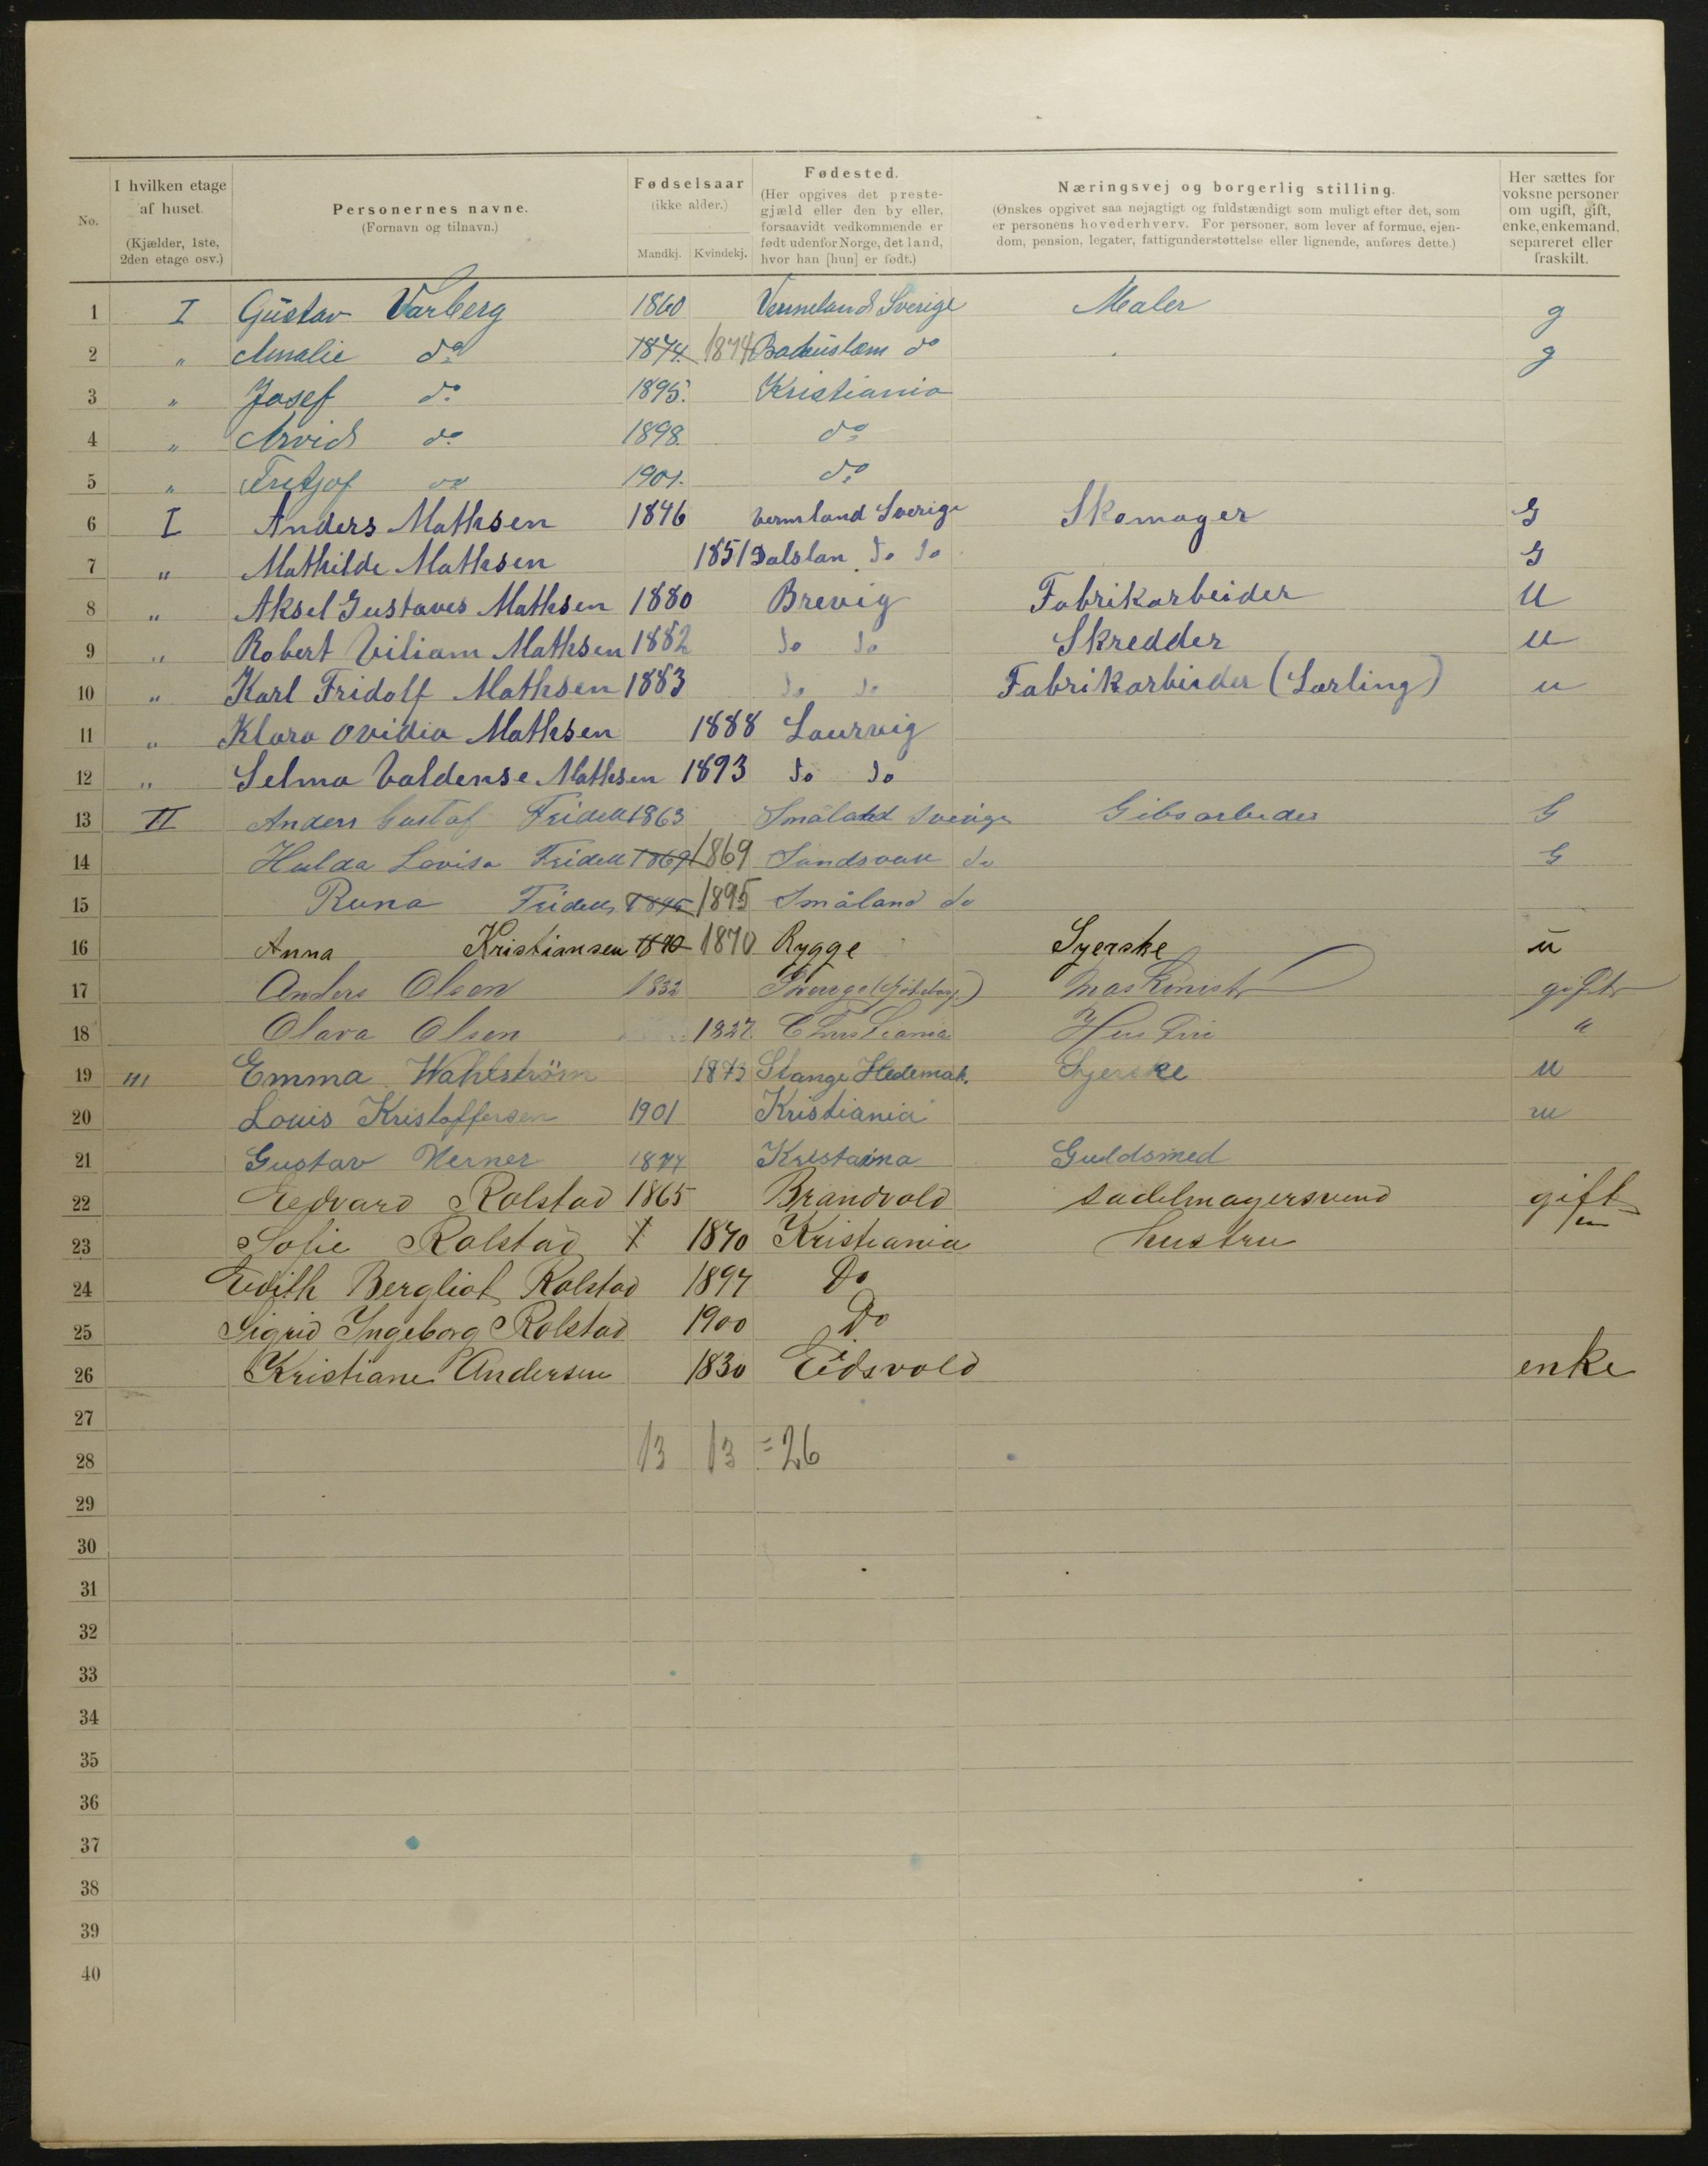 No.
I hvilken etage af huset.
(Kjælder, 1ste, 2den etage osv.)
Personernes navne.
(Fornavn og tilnavn.)
Fødselsaar
(ikke alder.)
Mandkj. Kvindekj.
Fødested.
(Her opgives det prestegjæld eller den by eller, forsaavidt vedkommende er født udenfor Norge, det land, hvor han [hun] er født.)
Næringsvej og borgerlig stilling.
(Ønskes opgivet saa nøjagtigt og fuldstændigt som muligt efter det, som er personens hovederhverv. For personer, som lever af formue, ejendom, pension, legater, fattigunderstøttelse eller lignende, anføres dette.)
Her sættes for voksne personer om ugift, gift, enke, enkemand, separeret eller fraskilt.
1 I Gustav Varberg 1860 Vermeland Sverige Maler g
2 " Amalie do 1874. 1874 Bahuslæm do g
3 " Josef do 1895. Kristiania
4 " Arvid do 1898. do
5 " Fretjof do 1901. do
6 I Anders Mathsen 1846 Vermland Sverige Skomager G
7 " Mathilde Mathsen 1851 Dalslan do do G
8 " Aksel Gustaves Mathsen 1880 Brevig Fabrikarbeider U
9 " Robert Viliam Mathsen 1882 do do Skredder u
10 " Karl Fridolf Mathsen 1883 do do Fabrikarbeider (Lærling) u
11 " Klara Ovidia Mathsen 1888 Laurvig
12 " Selma Valdense Mathsen 1893 do do
13 II Anders Gustaf Fridell 1863 Småland Sverige Gibsarbeder G
14 Hulda Lovisa Fridell 1869 1869 Sundsvall do G
15 Runa Fridell 1895 1895 Småland do
16 Anna Kristiansen 1870 1870 Rygge Syerske u
17 Anders Olsen 1832 Sverige (Göteborg) Maskinist gift
18 Olava Olsen 1827. Christiania Hustru "
19 III Emma Wahlström 1873 Stange Hedemak. Syerske u
20 Louis Kristoffersen 1901 Kristiania u
21 Gustav Werner 1874 Kristaina Guldsmed
22 Edvard Rolstad 1865 Brandvold sadelmagersvend gift
23 Sofie Rolstad 1870 Kristiania hustru
24 Edith Bergliot Rolstad 1897 Do
25 Sigrid Ingeborg Rolstad 1900 Do
26 Kristiane Andersen 1830 Eidsvold enke
27
28 13 13 = 26
29
30
31
32
33
34
35
36
37
38
39
40